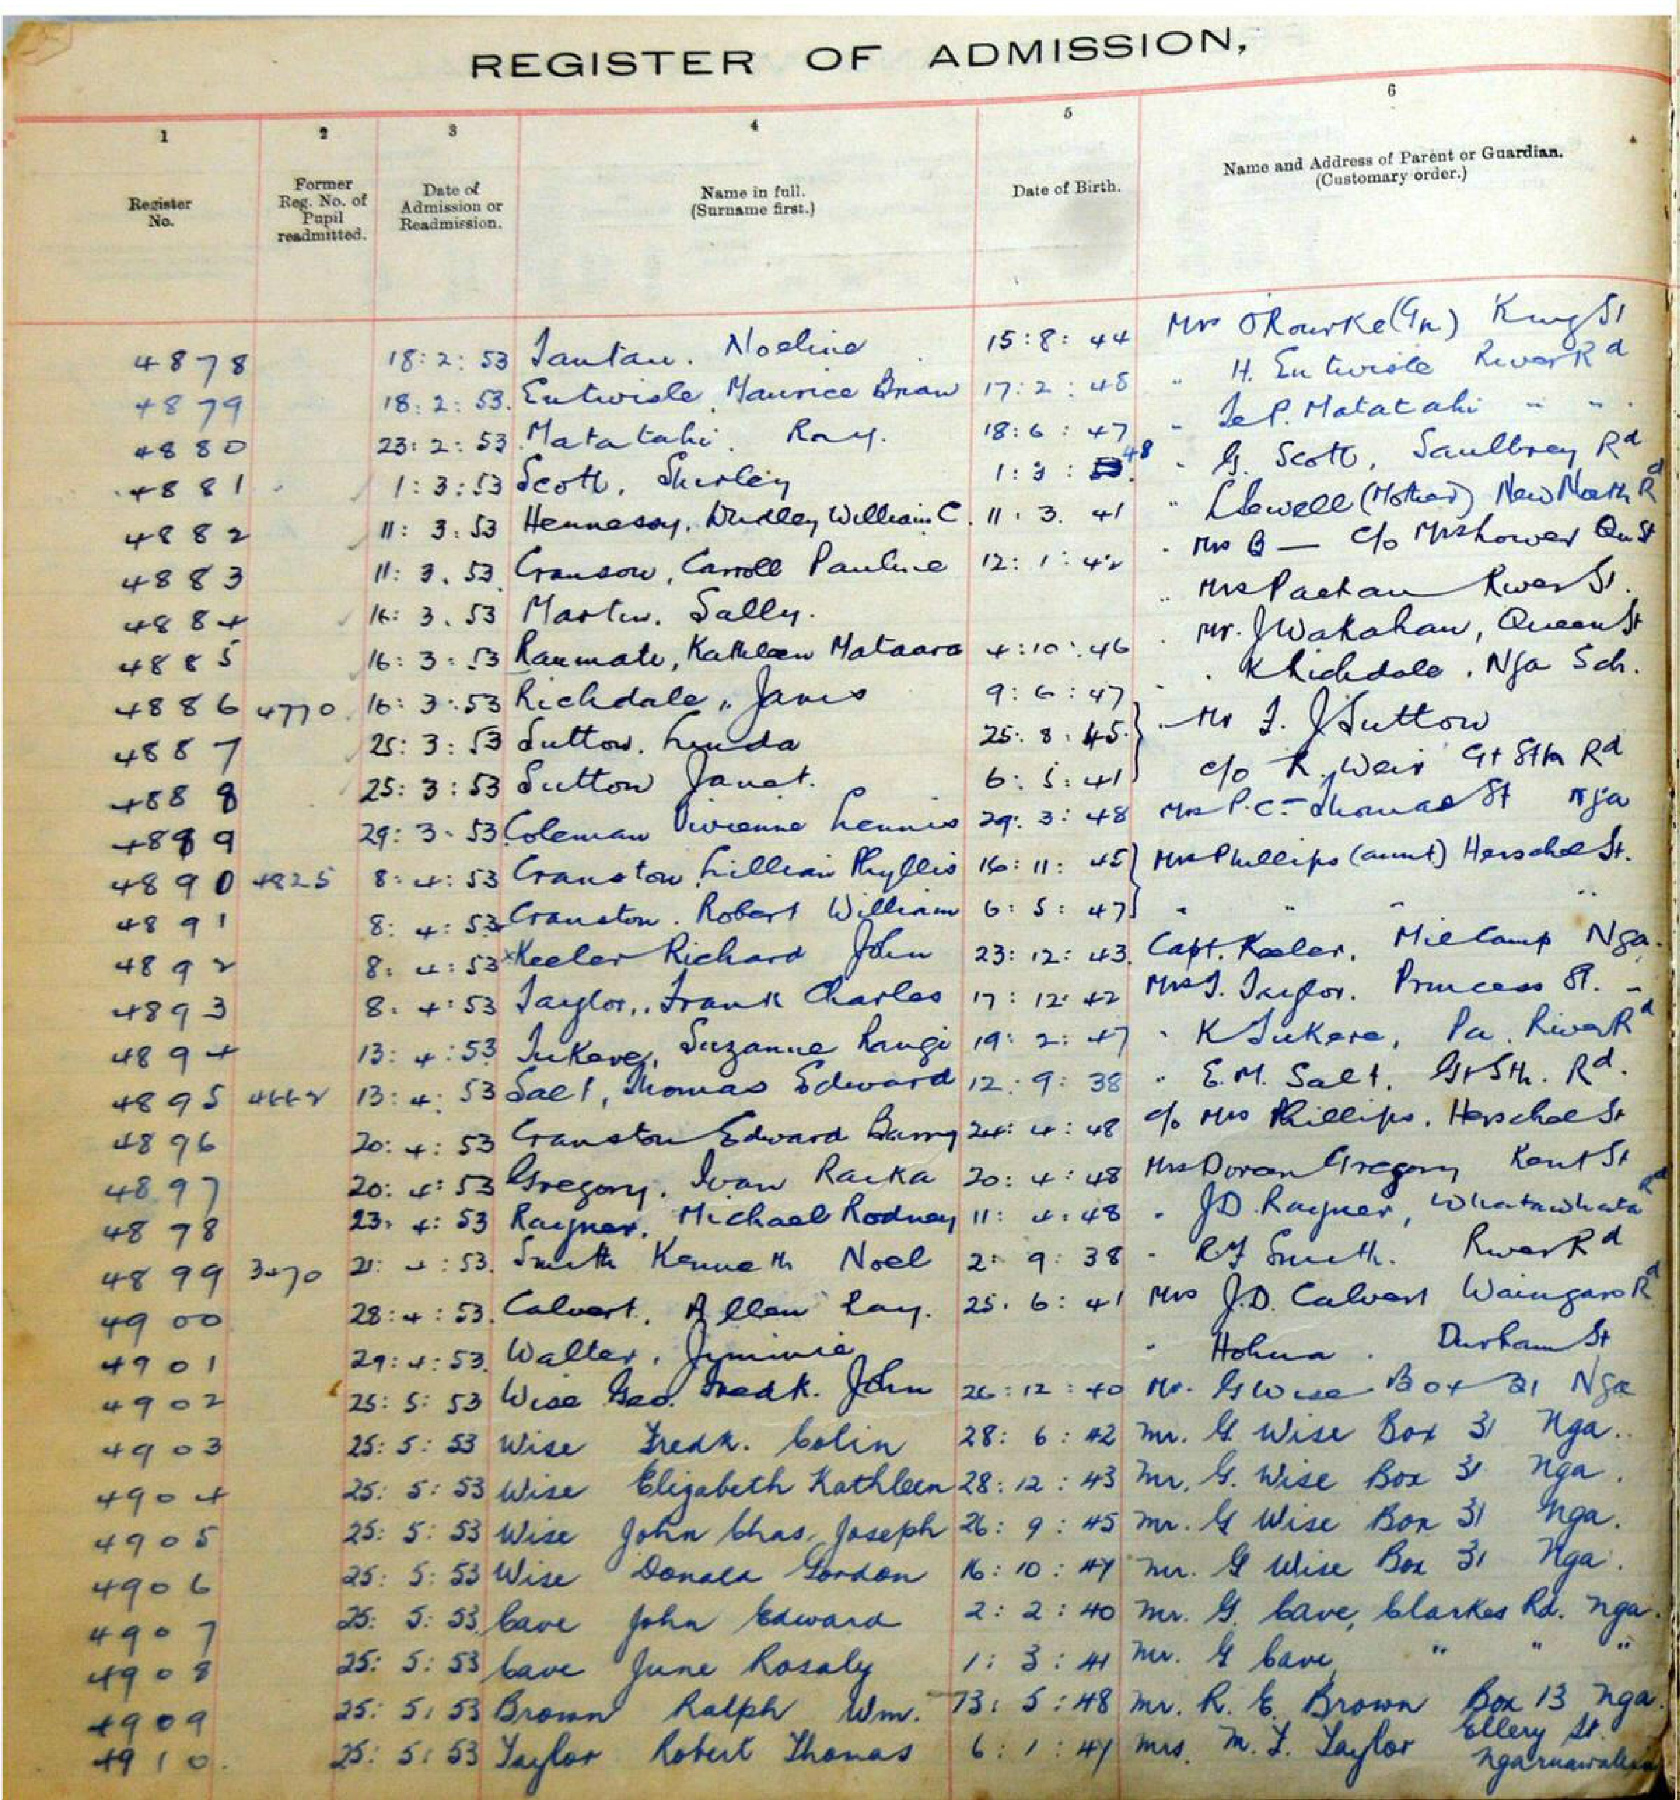 REGISTER OF ADMISSION,
1 2 3 4 5 6
Register No. Former Reg. No. of Pupil readmitted. Date of Admission or Readmission. Name in full. (Surname first.) Date of Birth. Name and Address of Parent or Guardian. (Customary order.)
4878 18:2:53 Noeline 15:8:44 Mrs O'Rourke (Gn) King St
4879 18:2:53. Entwisle Maurice Brian 17:2:48 " H. Entwisle River Rd
4880 23:2:53 Matatahi. Ray. 18:6:47 " Te P. Matatahi " "
4881 1:3:53 Scott, Shirley 1:3:48 " G. Scott, Saulbrey Rd
4882 11:3.53 Hennessy, Dudley William C. 11.3.41 " (Mother) New North Rd
4883 11:3.53 Carroll Pauline 12:1:42 " Mrs B — c/o Mrs Qu St
4884 16:3.53 Martin. Sally. " Mrs River St.
4885 16:3:53 Kathleen Mataara 4:10:46 " Mr. J Wakahau, Queen St
4886 4770 16:3:53 Richdale, Janis 9:6:47 " K Richdale, Nga Sch.
4887 25:3:53 Sutton. Linda 25.8.45 Mr J Sutton
4888 25:3:53 Sutton Janet. 6:5:41 c/o R. Weir Gt Sth Rd
4889 29:3.53 Coleman Vivienne Lennis 29:3:48 Mrs P.C - Thomas St Nga
4890 4825 8:4:53 Cranston Lillian Phyllis 16:11:45 Mrs Phillips (aunt) Herschel St.
4891 8:4:53 Cranston. Robert William 6:5:47 " " " "
4892 8:4:53 Keeler Richard John 23:12:43. Capt. Keeler. Mil Camp Nga.
4893 8.4:53 Taylor, Frank Charles 17:12:42 Mrs J. Taylor. Princess St. "
4894 13:4:53 Tukere, Suzanne Rangi 19:2:47 " K Tukere, Pa. River Rd
4895 4662 13:4:53 Salt, Thomas Edward 12.9:38 " E.M. Salt. Gt Sth. Rd.
4896 20:4:53 Cranston Edward Barry 24:4:48 c/o Mrs Phillips. Herschel St
4897 20:4:53 Gregory. Ivan Raika 20:4:48 Mrs Doreen Gregory Kent St
4878 23.4:53 Rayner. Michael Rodney 11:4:48 " J.D. Rayner, Whatawhata Rd
4899 3470 21:4:53. Smith Kenneth Noel 2:9:38 " Smith. River Rd
4900 28:4:53. Calvert. Allen Ray. 25.6:41 Mrs J.D. Calvert Waingaro Rd
4901 29:4:53. Walter, Jimmie " Hohua. Durham St
4902 25:5:53 Wise Geo. Fredk. John 26:12:40 Mr. G Wise Box 31 Nga
4903 25:5:53 Wise Fredk. Colin 28:6:42 Mr. G. Wise Box 31 Nga.
4904 25:5:53 Wise Elizabeth Kathleen 28:12:43 Mr. G. Wise Box 31 Nga.
4905 25:5:53 Wise John Chas. Joseph 26:9:45 Mr. G Wise Box 31 Nga.
4906 25:5:53 Wise Donald Gordon 16:10:47 Mr. G Wise Box 31 Nga.
4907 25:5:53 Cave John Edward 2:2:40 Mr. G. Cave, Clarkes Rd. Nga.
4908 25:5:53 Cave June Rosaly 1:3:41 Mr. G Cave " " "
4909 25:5:53 Brown Ralph Wm. 13:5:48 Mr. R. E. Brown Box 13 Nga.
4910. 25:5:53 Taylor Robert Thomas 6:1:47 Mrs. M. F. Taylor Ellery St. Ngaruawahia